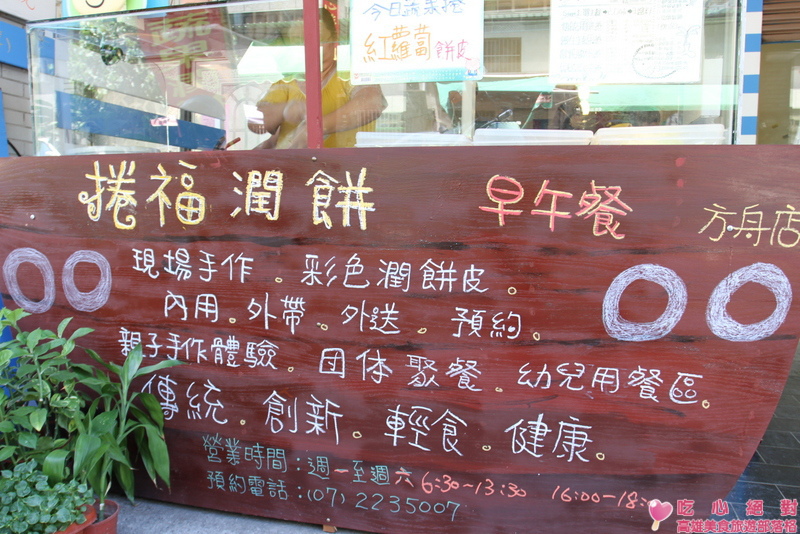 今日蔬菜捲
紅蘿蔔餅皮
捲福潤餅 早午餐 方舟店
現場手作。彩色潤餅皮。
內用。外帶。外送。預約。
親子手作體驗。团体聚餐。幼兒用餐區。
傳統。創新。輕食。健康。
營業時間：週一至週六 6:30~13:30 16:00-18:
預約電話：(07) 2235007
吃心絕對
高雄美食旅遊部落格